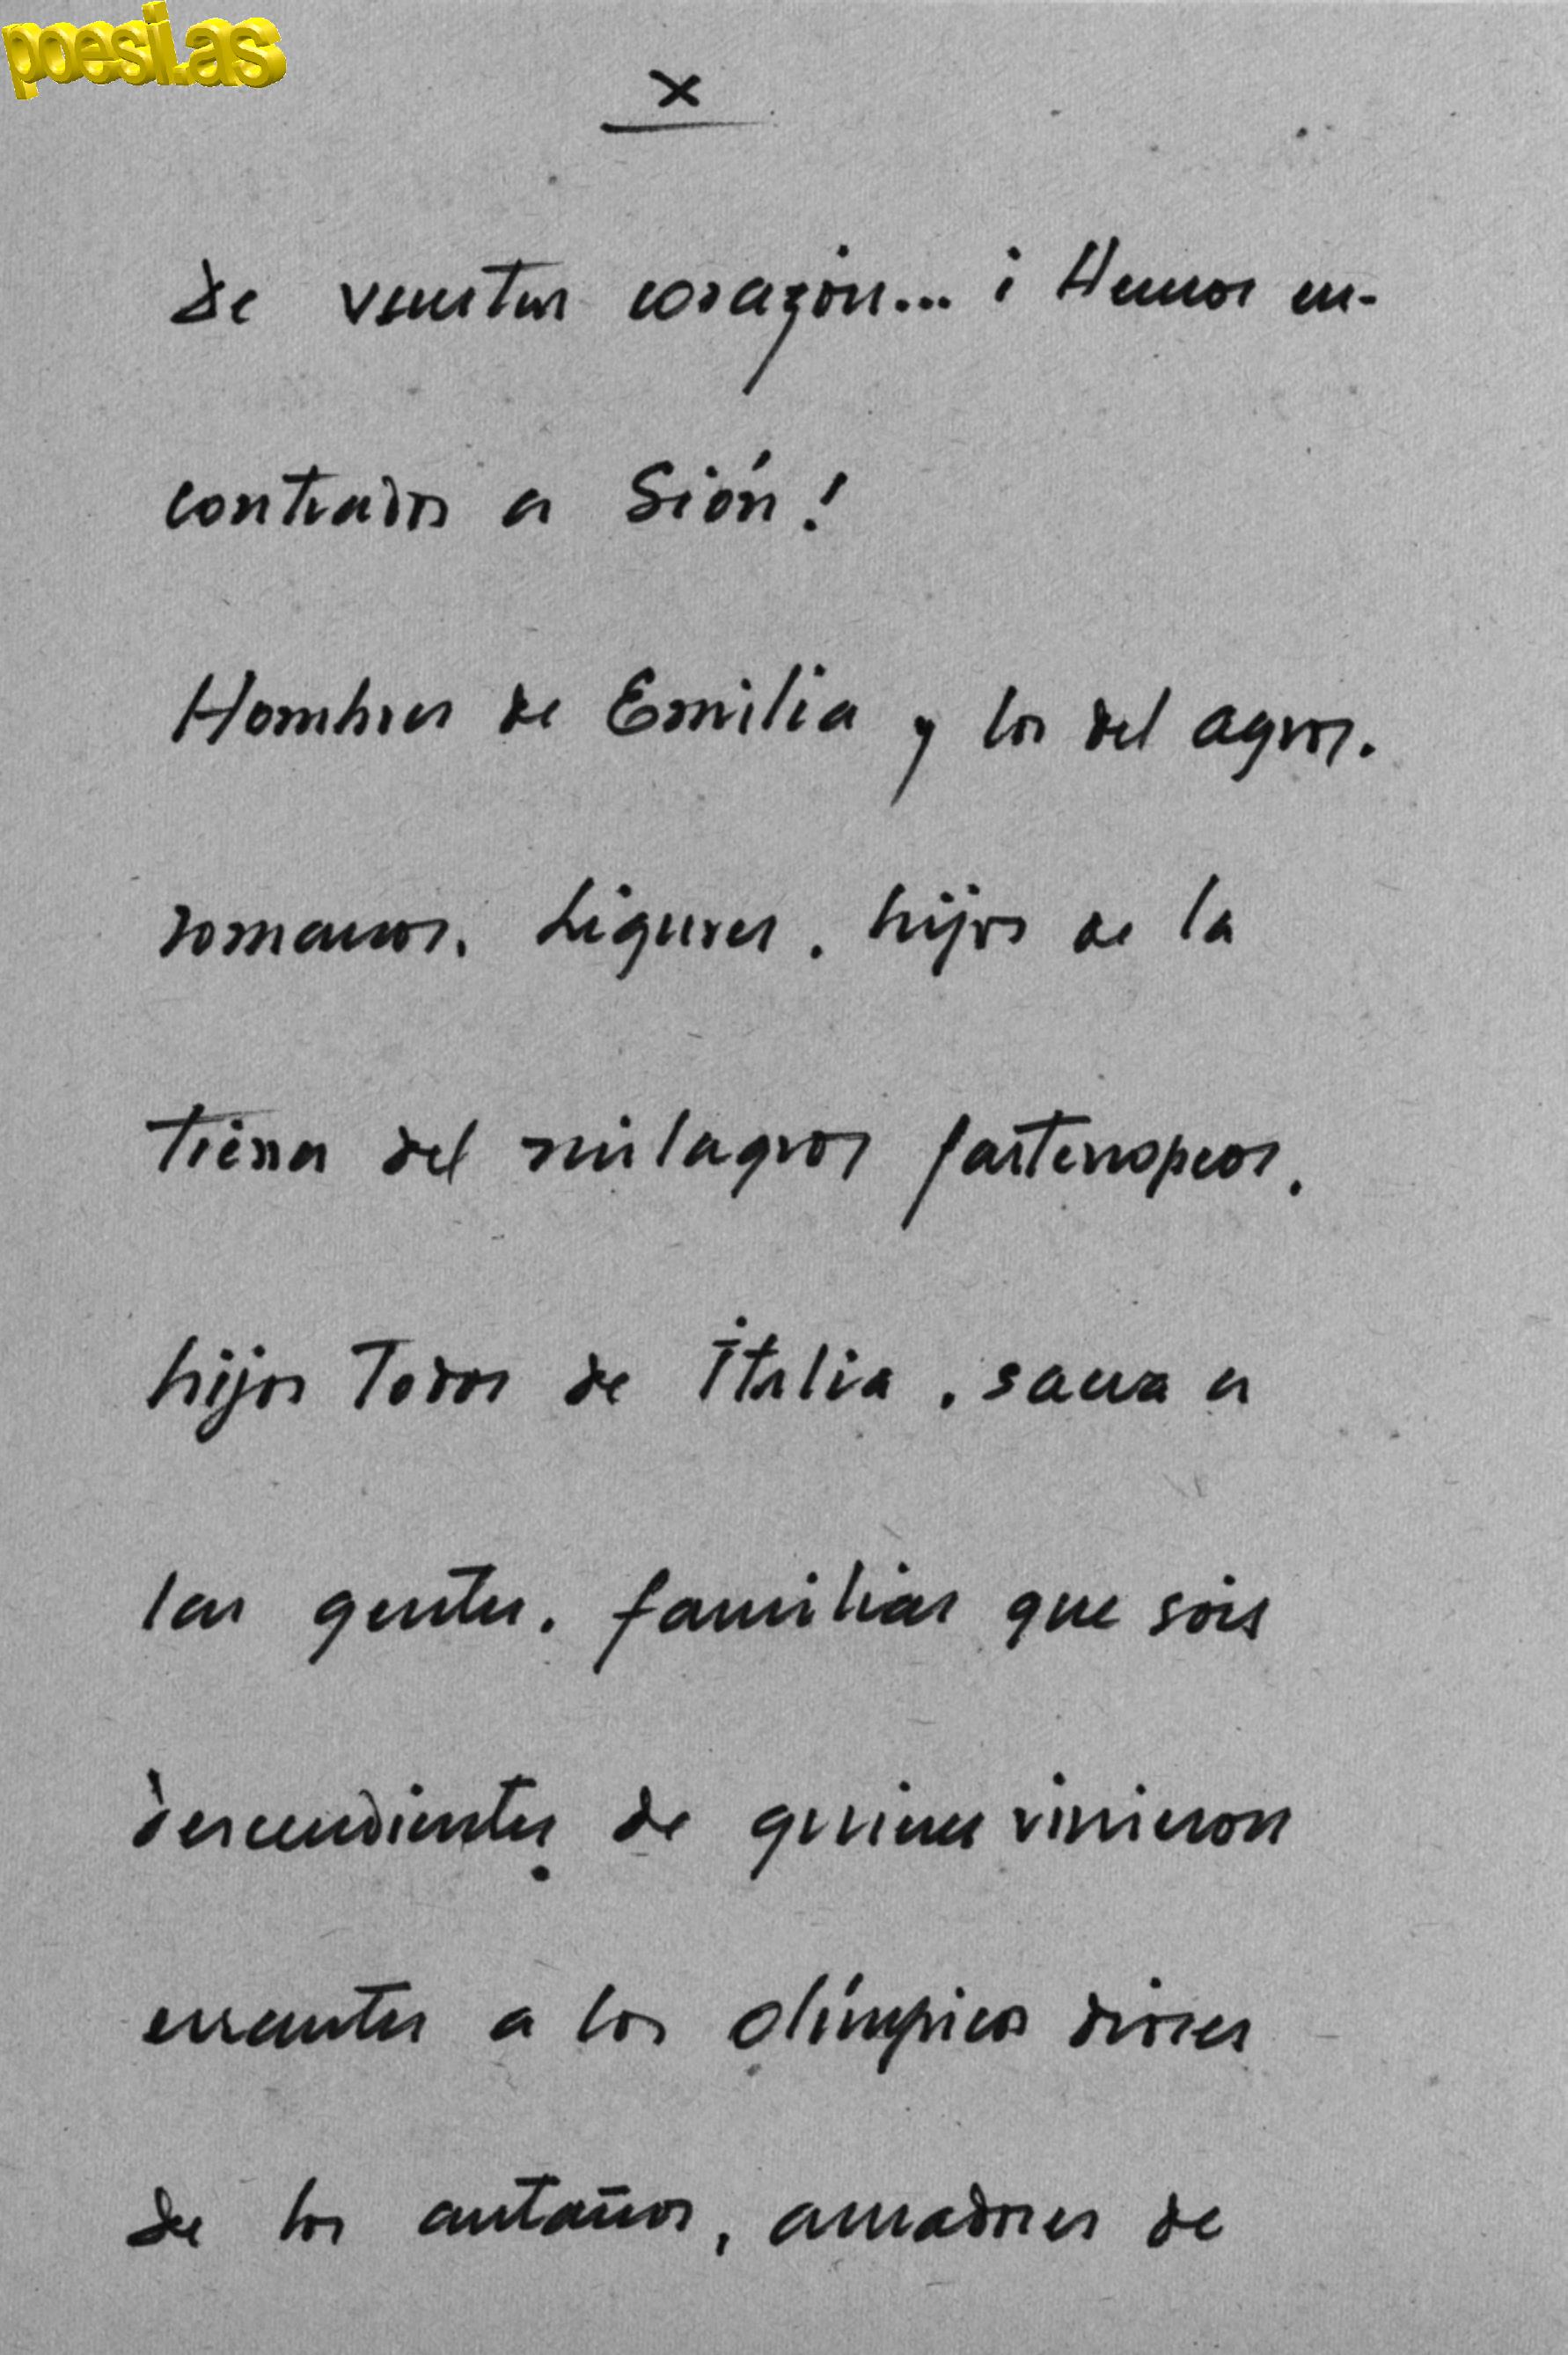 poesi.as
x
de vuestros corazón... ¡Hemos en-
contrados a Sión!
Hombres de Emilia y los del agros.
romanos. Ligures. hijos de la
tierra del milagros partenopeos.
hijos Todos de Italia. sacra a
las gentes. familias que sois
descendientes de quienes vinieron
errantes a los olímpicos dioses
de los antaños, amadores de